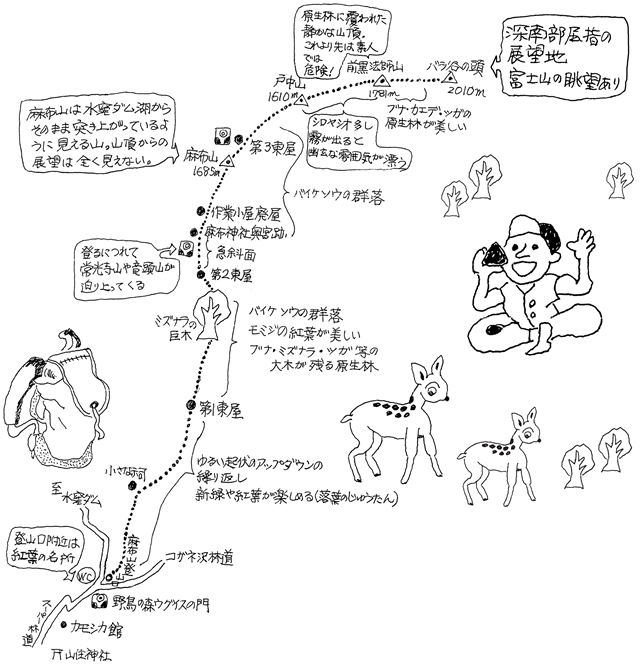 原生林に覆われた
静かな山頂。
これより先は素人
では
危険!
深南部屈指の
展望地
富士山の眺望あり
バラ谷の頭
2010m
前黒法師山
1781m
戸中山
1610m
ブナ・カエデ・ツガの
原生林が美しい
シロヤシオ多し
霧が出ると
幽玄な雰囲気が漂う
麻布山は水窪ダム湖から
そのまま突き上がっているよ
うに見える山。山頂からの
展望は全く見えない。
第3東屋
麻布山
1685m
バイケイソウの群落
作業小屋廃屋
麻布神社奥宮跡
急斜面
登るにつれて
常光寺山や竜頭山が
迫り上ってくる
第2東屋
ミズナラの
巨木
バイケソウの群落
モミジの紅葉が美しい
ブナ・ミズナラ・ツガ等の
大木が残る原生林
第1東屋
ゆるい起伏のアップダウンの
繰り返し
新緑や紅葉が楽しめる(落葉のじゅうたん)
小さな祠
至水窪ダム
登山口附近は
紅葉の名所
WC
麻布山登山口
コガネ沢林道
野鳥の森ウグイスの門
スーパー林道
カモシカ館
山住神社